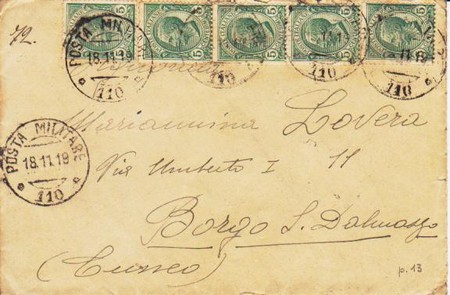 72.
5 5 5 5 5
POSTA MILITARE
18.11.19
110
110
110
110
POSTA MILITARE
18.11.19
110
Mariannina Lovera
Via Umberto I 11
Borgo S. Dalmazzo
(Cuneo)
p. 13